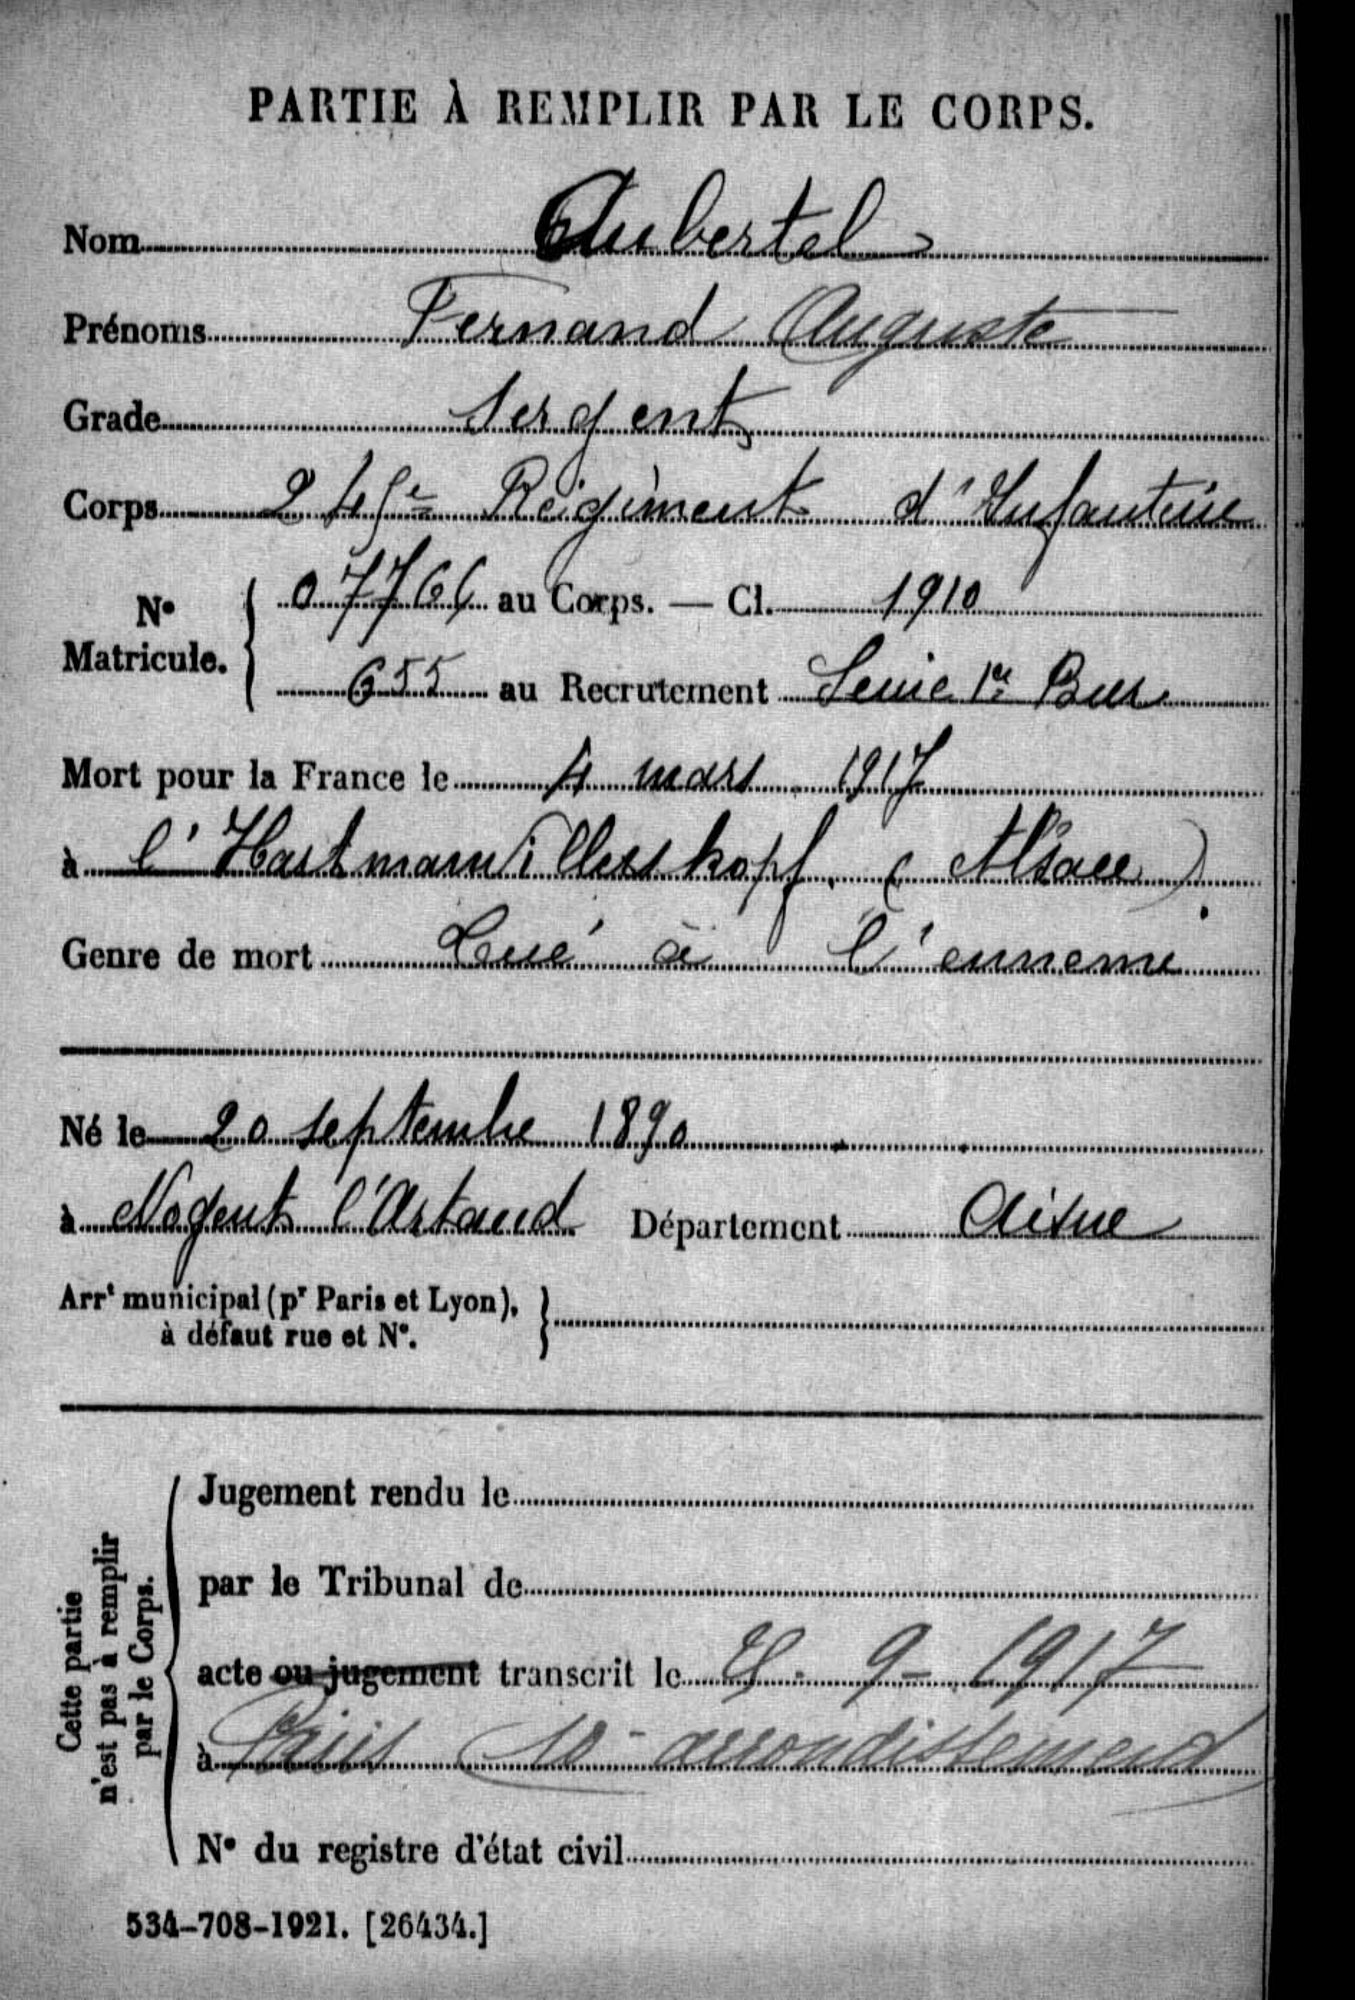 PARTIE À REMPLIR PAR LE CORPS.
Nom Aubertel
Prénoms Fernand Auguste
Grade Sergent
Corps 245e Régiment d'Infanterie
No Matricule. 07766 au Corps. — Cl. 1910
655 au Recrutement Seine 1er Bur
Mort pour la France le 4 mars 1917
à l'Hartmannwillerskopf. (Alsace)
Genre de mort Tué à l'ennemi
Né le 20 septembre 1890
à Nogent l'Artaud Département Aisne
Arrt municipal (pr Paris et Lyon),
à défaut rue et No.
Cette partie
n'est pas à remplir
par le Corps.
Jugement rendu le
par le Tribunal de
acte ou jugement transcrit le 9-1917
à Paris (10e arrondissement)
No du registre d'état civil
534-708-1921. [26434.]